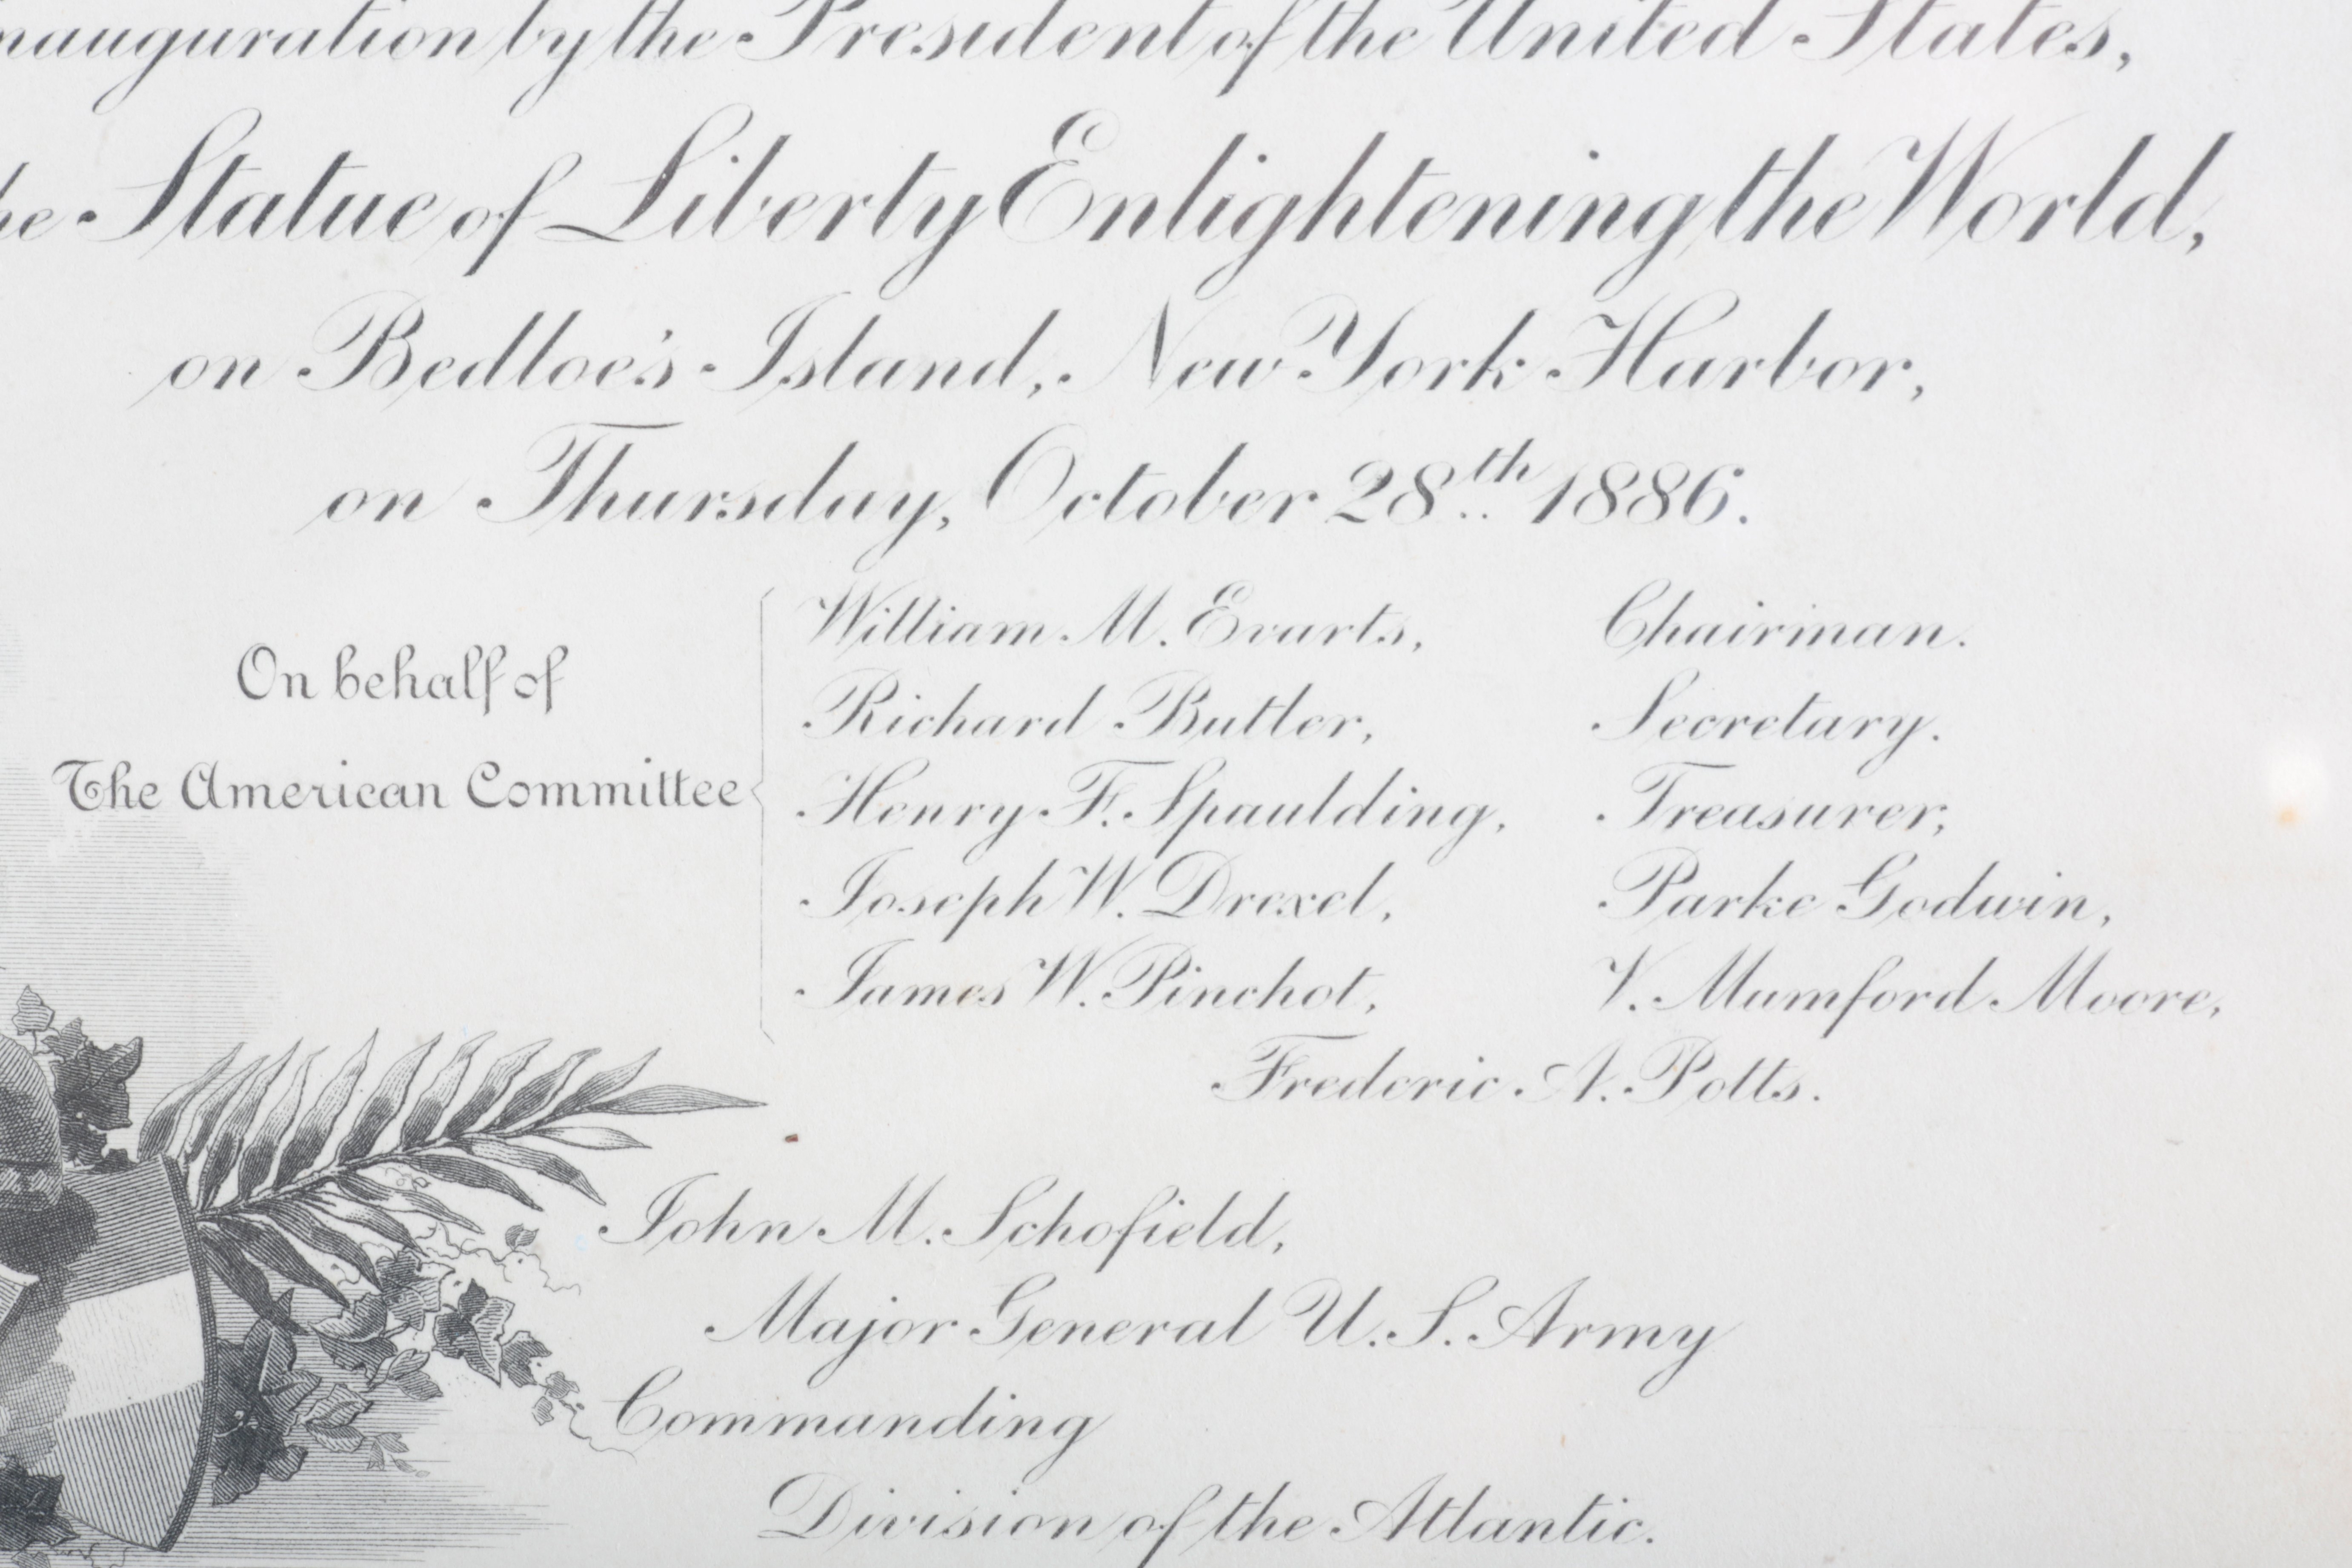 nauguration by the President of the United States,
he Statue of Liberty Enlightening the World,
on Bedloe's Island, New York Harbor,
on Thursday, October 28th 1886.
On behalf of
The American Committee
William M. Evarts, Chairman.
Richard Butler, Secretary.
Henry F. Spaulding, Treasurer,
Joseph W. Drexel, Parke Godwin,
James W. Pinchot, V. Mumford Moore,
Frederic A. Potts.
John M. Schofield,
Major General U.S. Army
Commanding
Division of the Atlantic.